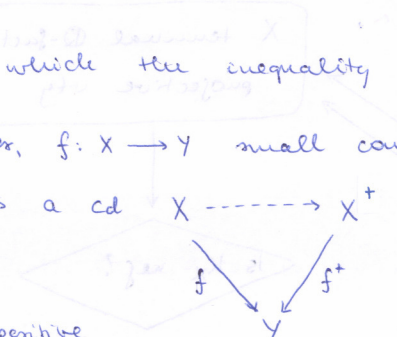 which the inequality
f: X → Y small
a cd X ⇢ X⁺
f f⁺
Y